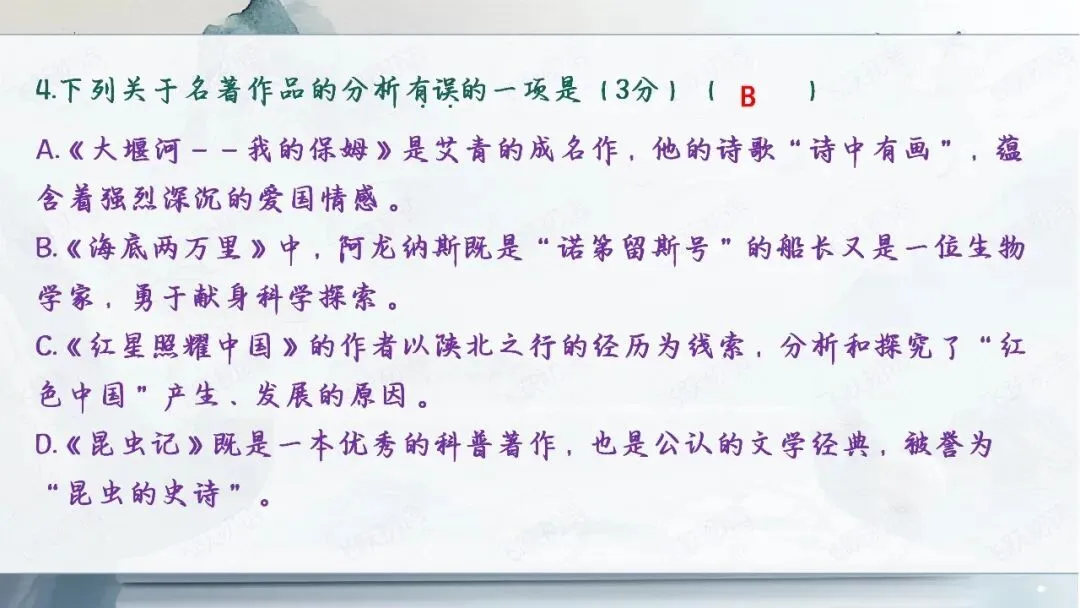 4.下列关于名著作品的分析有误的一项是（3分）（ B ）
A.《大堰河--我的保姆》是艾青的成名作，他的诗歌“诗中有画”，蕴
含着强烈深沉的爱国情感。
B.《海底两万里》中，阿龙纳斯既是“诺第留斯号”的船长又是一位生物
学家，勇于献身科学探索。
C.《红星照耀中国》的作者以陕北之行的经历为线索，分析和探究了“红
色中国”产生、发展的原因。
D.《昆虫记》既是一本优秀的科普著作，也是公认的文学经典，被誉为
“昆虫的史诗”。